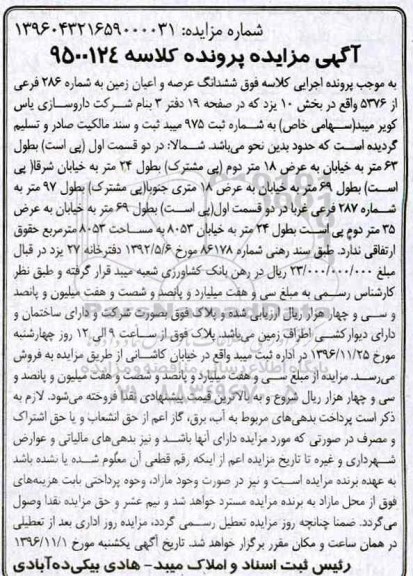 شماره مزایده: ۱۳۹۶۰۴۳۲۱۶۵۹۰۰۰۰۳۱
آگهی مزایده پرونده کلاسه ۹۵۰۰۱۲۴
به موجب پرونده اجرایی کلاسه فوق ششدانگ عرصه و اعیان زمین به شماره ۲۸۶ فرعی
از ۵۳۷۶ واقع در بخش ۱۰ یزد که در صفحه ۱۹ دفتر ۳ بنام شرکت داروسازی یاس
کویر میبد(سهامی خاص) به شماره ثبت ۹۷۵ میبد ثبت و سند مالکیت صادر و تسلیم
گردیده است که حدود بدین نحو می‌باشد. شمالا: در دو قسمت اول (پی است) بطول
۶۳ متر به خیابان به عرض ۱۸ متر دوم (پی مشترک) بطول ۲۴ متر به خیابان شرقا( پی
است) بطول ۶۹ متر به خیابان به عرض ۱۸ متری جنوبا(پی مشترک) بطول ۹۷ متر به
شماره ۲۸۷ فرعی غربا در دو قسمت اول(پی است) بطول ۶۹ متر به خیابان به عرض
۳۵ متر دوم پی است بطول ۲۴ متر به خیابان ۸۰۵۳ به مساحت ۸۰۵۳ مترمربع حقوق
ارتفاقی ندارد. طبق سند رهنی شماره ۸۶۱۷۸ مورخ ۱۳۹۲/۵/۶ دفترخانه ۲۷ یزد در قبال
مبلغ ۲۳/۰۰۰/۰۰۰/۰۰۰ ریال در رهن بانک کشاورزی شعبه میبد قرار گرفته و طبق نظر
کارشناس رسمی به مبلغ سی و هفت میلیارد و پانصد و شصت و هفت میلیون و پانصد
و سی و چهار هزار ریال ارزیابی شده و پلاک فوق بصورت شرکت و دارای ساختمان و
دارای دیوارکشی اطراف زمین می‌باشد. پلاک فوق از ساعت ۹ الی ۱۲ روز چهارشنبه
مورخ ۱۳۹۶/۱۱/۲۵ در اداره ثبت میبد واقع در خیابان کاشانی از طریق مزایده به فروش
می‌رسد. مزایده از مبلغ سی و هفت میلیارد و پانصد و شصت و هفت میلیون و پانصد و
سی و چهار هزار ریال شروع و به بالاترین قیمت پیشنهادی نقدا فروخته می‌شود. لازم به
ذکر است پرداخت بدهی‌های مربوط به آب، برق، گاز اعم از حق انشعاب و یا حق اشتراک
و مصرف در صورتی که مورد مزایده دارای آنها باشد و نیز بدهی‌های مالیاتی و عوارض
شهرداری و غیره تا تاریخ مزایده اعم از اینکه رقم قطعی آن معلوم شده یا نشده باشد
به عهده برنده مزایده است و نیز در صورت وجود مازاد، وجوه پرداختی بابت هزینه‌های
فوق از محل مازاد به برنده مزایده مسترد خواهد شد و نیم عشر و حق مزایده نقدا وصول
می‌گردد. ضمنا چنانچه روز مزایده تعطیل رسمی گردد، مزایده روز اداری بعد از تعطیلی
در همان ساعت و مکان مقرر برگزار خواهد شد. تاریخ آگهی یکشنبه مورخ ۱۳۹۶/۱۱/۱
رئیس ثبت اسناد و املاک میبد- هادی بیکی‌ده‌آبادی